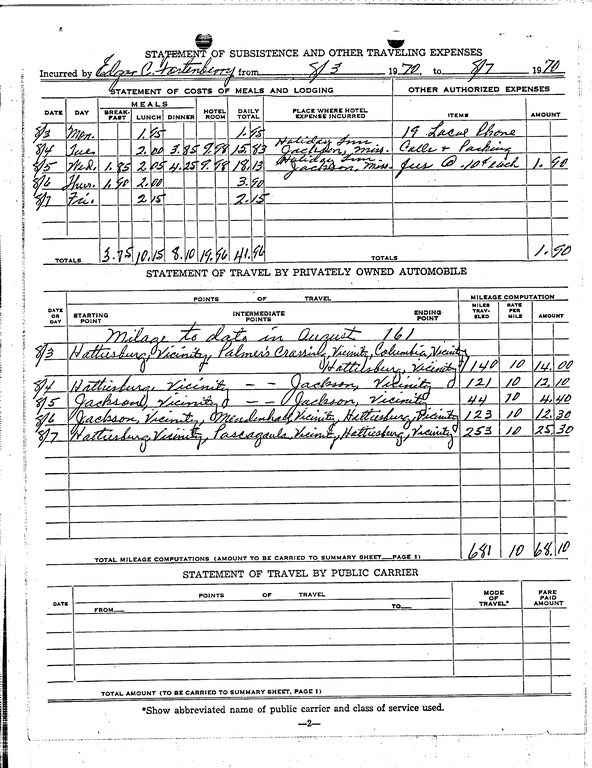 STATEMENT OF SUBSISTENCE AND OTHER TRAVELING EXPENSES
Incurred by Edgar C. Fortenberry from 8/3 1970, to 8/7 1970
STATEMENT OF COSTS OF MEALS AND LODGING OTHER AUTHORIZED EXPENSES
DATE DAY MEALS BREAK-FAST LUNCH DINNER HOTEL ROOM DAILY TOTAL PLACE WHERE HOTEL EXPENSE INCURRED ITEMS AMOUNT
8/3 Mon. 1.95 1.95 19 Local Phone
8/4 Tues 2.00 3.85 9.98 15.83 Holiday Inn Jackson, Miss. Calls & Parking
8/5 Wed. 1.85 2.05 4.25 9.98 18.13 Holiday Inn Jackson, Miss. @ .10¢ each 1.90
8/6 Thur. 1.90 2.00 3.90
8/7 Fri. 2.15 2.15
TOTALS 3.75 10.15 8.10 19.96 41.96 TOTALS 1.90
STATEMENT OF TRAVEL BY PRIVATELY OWNED AUTOMOBILE
DATE OR DAY POINTS OF TRAVEL MILEAGE COMPUTATION
STARTING POINT INTERMEDIATE POINTS ENDING POINT MILES TRAV-ELED RATE PER MILE AMOUNT
Milage to date in August 161
8/3 Hattiesburg, Vicinity, Palmers Crossing, Vicinity, Columbia, Vicinity
Hattiesburg, Vicinity 140 10 14.00
8/4 Hattiesburg, Vicinity - - Jackson, Vicinity 121 10 12.10
8/5 Jackson, Vicinity - - Jackson, Vicinity 44 10 4.40
8/6 Jackson, Vicinity, Mendenhall, Vicinity, Hattiesburg, Vicinity 123 10 12.30
8/7 Hattiesburg, Vicinity, Pascagoula, Vicinity, Hattiesburg, Vicinity 253 10 25.30
TOTAL MILEAGE COMPUTATIONS (AMOUNT TO BE CARRIED TO SUMMARY SHEET—PAGE 1) 681 10 68.10
STATEMENT OF TRAVEL BY PUBLIC CARRIER
DATE POINTS OF TRAVEL MODE OF TRAVEL* FARE PAID AMOUNT
FROM TO
TOTAL AMOUNT (TO BE CARRIED TO SUMMARY SHEET, PAGE 1)
*Show abbreviated name of public carrier and class of service used.
—2—